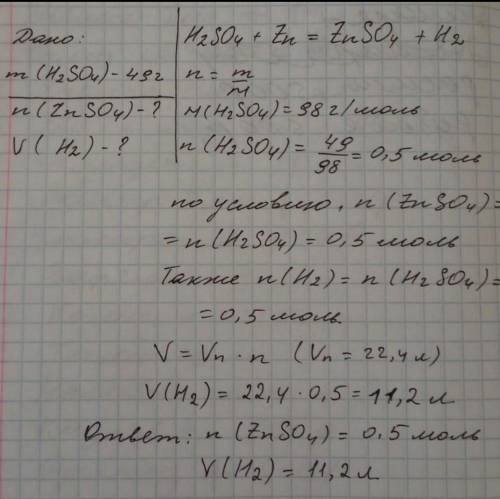 Дано:
m(H2SO4)-49г
n(ZnSO4)-?
V( H2)-?
H2SO4 + Zn = ZnSO4 + H2
n = m/м
м(H2SO4)=98 г/моль
n(H2SO4)= 49/98 = 0,5 моль
по условию, n(ZnSO4)=
=n(H2SO4)=0,5 моль
Также n(H2)=n(H2SO4)=
=0,5 моль.
V=Vn·n (Vn=22,4л)
V(H2)=22,4·0,5=11,2л
Ответ: n(ZnSO4)=0,5моль
V(H2)=11,2л